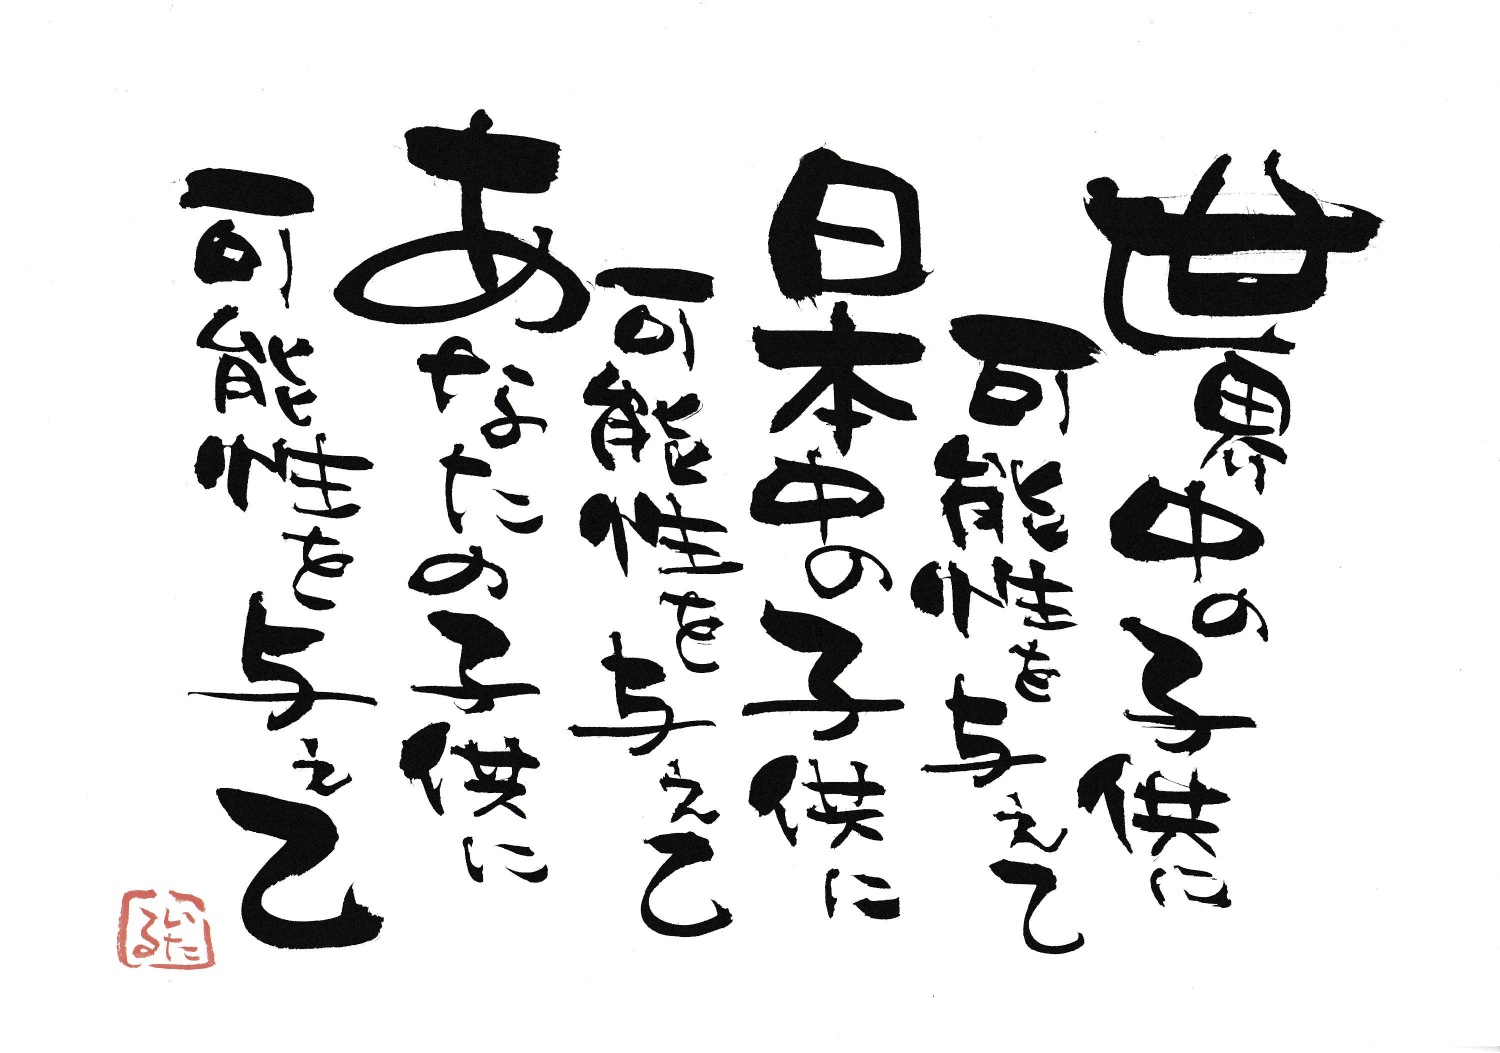 世界中の子供に
可能性を与えて
日本中の子供に
可能性を与えて
あなたの子供に
可能性を与えて
いたる